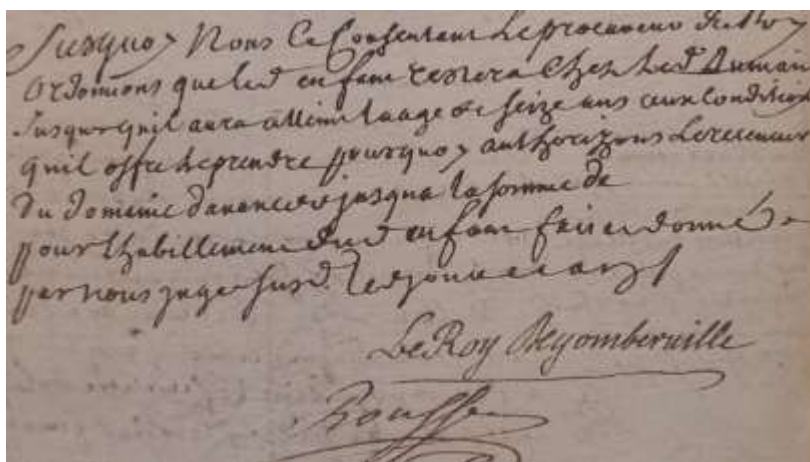 Surquoy Nous Ce Consentant Le procureur du Roy
ordonnons que led enfant restera Chez Led Dumain
Jusqu'aquil aura atteint laage de seize ans aux Conditions
quil offre Leprendre pourquoy authorizons Lereceveur
du domeine davancer jusqua la somme de
pour Lhabillement dud enfant fait et donné
par nous juge susd. les jour et an
LeRoy Degomberville
Rousse